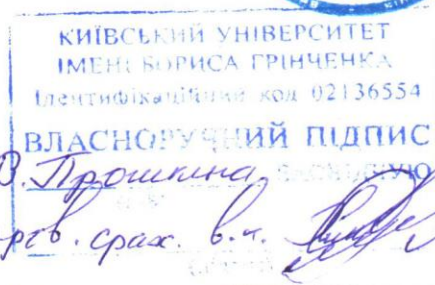 КИЇВСЬКИЙ УНІВЕРСИТЕТ
ІМЕНІ БОРИСА ГРІНЧЕНКА
Ідентифікаційний код 02136554
ВЛАСНОРУЧНИЙ ПІДПИС
В. Прошкіна ЗАСВІДЧУЮ